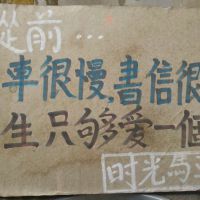 從前...
車很慢,書信很
生只够爱一個
时光馬